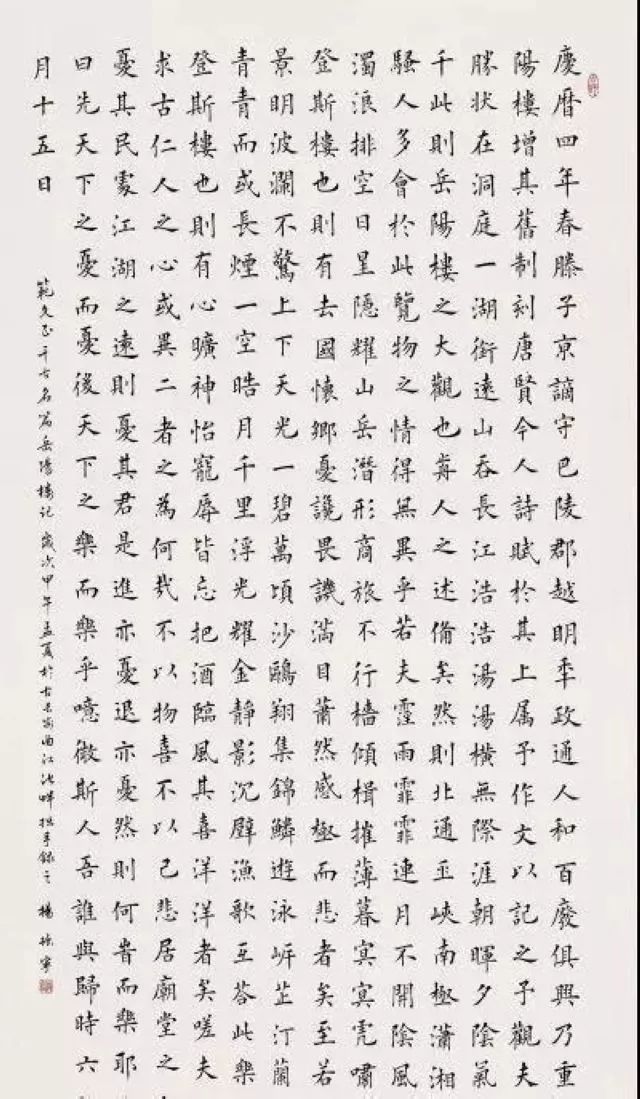 慶曆四年春滕子京謫守巴陵郡越明秊政通人和百廢俱興乃重
陽樓增其舊制刻唐賢今人詩賦於其上属予作文以記之予觀夫
勝状在洞庭一湖銜遠山吞長江浩浩湯湯橫無際涯朝暉夕陰氣
千此則岳陽樓之大觀也歬人之述備矣然則北通巫峽南極瀟湘
騷人多會於此覽物之情得無異乎若夫霪雨霏霏連月不開陰風
濁浪排空日星隱耀山岳潛形商旅不行檣傾楫摧薄暮冥冥虎嘯
登斯樓也則有去國懷鄉憂讒畏譏滿目蕭然感極而悲者矣至若
景明波瀾不驚上下天光一碧萬頃沙鷗翔集錦鱗遊泳岸芷汀蘭
青青而或長煙一空皓月千里浮光耀金靜影沉璧漁歌互荅此樂
登斯樓也則有心曠神怡寵辱皆忘把酒臨風其喜洋洋者矣嗟夫
求古仁人之心或異二者之為何哉不以物喜不以己悲居廟堂之
憂其民處江湖之遠則憂其君是進亦憂退亦憂然則何旹而樂耶
曰先天下之憂而憂後天下之樂而樂乎噫微斯人吾誰與歸時六
月十五日
範文正千古名篇岳陽樓記歲次甲午孟夏於古長安曲江池畔拙手錄之楊寧